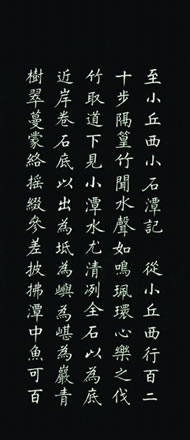 至小丘西小石潭記 從小丘西行百二
十步隔篁竹聞水聲如鳴珮環心樂之伐
竹取道下見小潭水尤清冽全石以為底
近岸卷石底以出為坻為嶼為嵁為巖青
樹翠蔓蒙絡搖綴參差披拂潭中魚可百